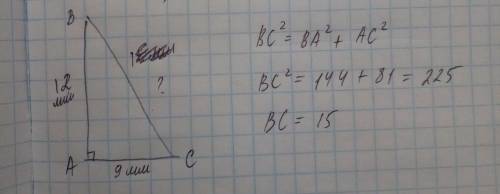 B
12
мм
?
A
9 мм
C
BC² = BA² + AC²
BC² = 144 + 81 = 225
BC = 15